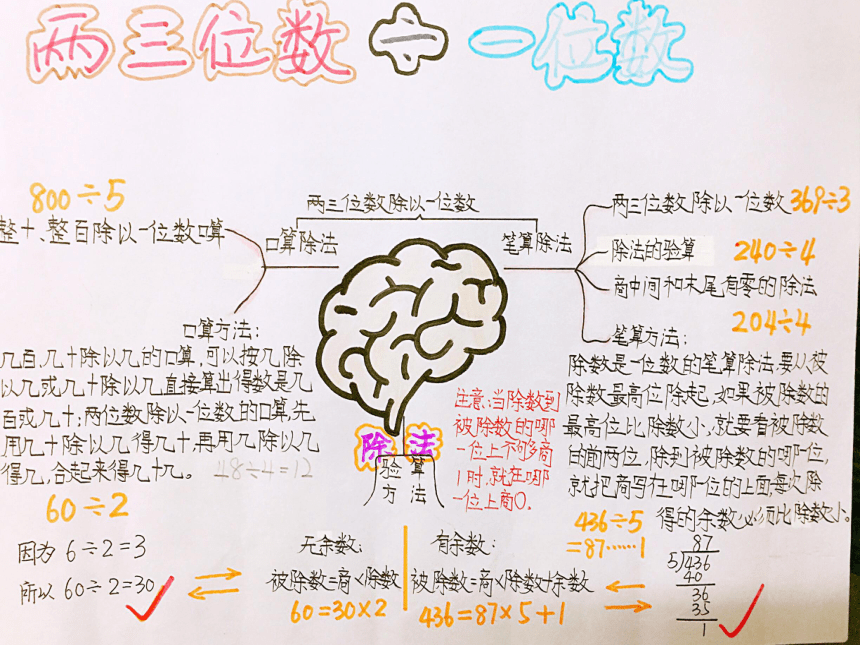 两三位数÷一位数
两三位数除以一位数
口算除法
笔算除法
800÷5
整十、整百除以一位数口算
口算方法：
几百、几十除以几的口算,可以按几除
以几或几十除以几直接算出得数是几
百或几十；两位数除以一位数的口算,先
用几十除以几得几十,再用几除以几
得几,合起来得几十几。
48÷4=12
60÷2
因为 6÷2=3
所以 60÷2=30
两三位数除以一位数 369÷3
除法的验算 240÷4
商中间和末尾有零的除法
204÷4
笔算方法：
除数是一位数的笔算除法,要从被
除数最高位除起,如果被除数的
最高位比除数小,就要看被除数
的前两位,除到被除数的哪一位,
就把商写在哪一位的上面,每次除
得的余数必须比除数小。
注意:当除数到
被除数的哪
一位上不够商
1时,就在哪
一位上商0。
除法
验算
方法
无余数：
被除数=商×除数
60=30×2
有余数：
被除数=商×除数+余数
436=87×5+1
436÷5
=87……1
87
5)436
40
36
35
1